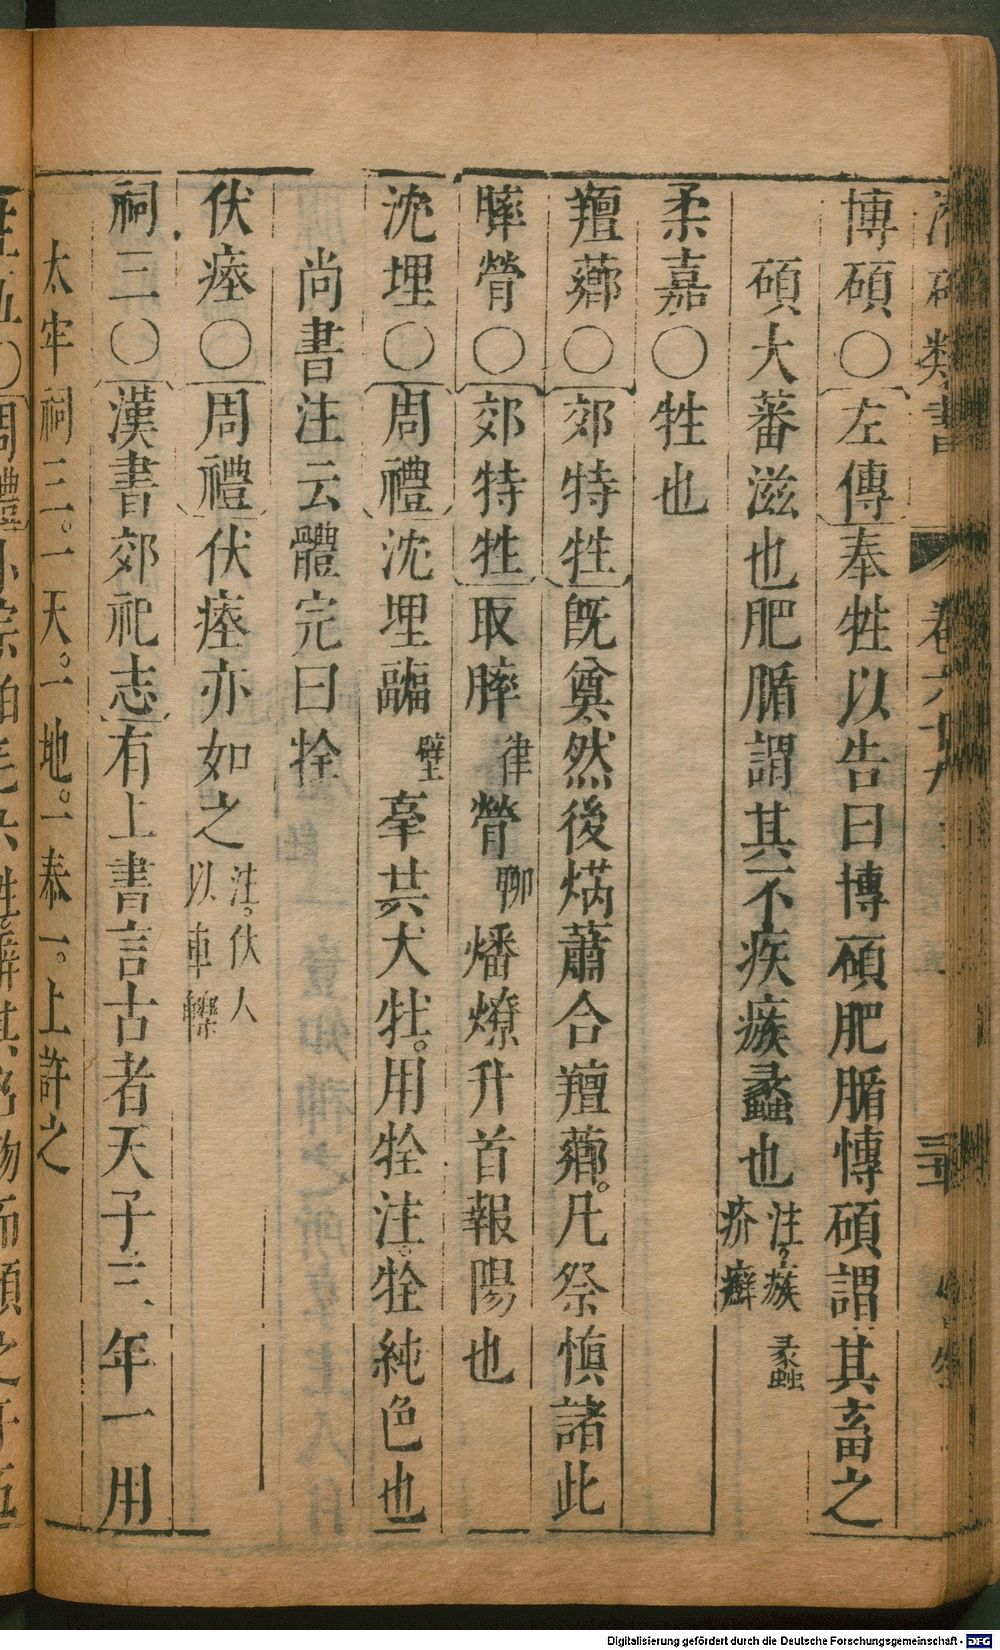 潛確類書 卷六十九
博碩○左傳奉牲以告曰博碩肥腯愽碩謂其畜之
碩大蕃滋也肥腯謂其不疾瘯蠡也注瘯蠡疥癬
柔嘉○牲也
羶薌○郊特牲既奠然後焫蕭合羶薌凡祭慎諸此
膟膋○郊特牲取膟律膋聊燔燎升首報陽也
沈埋○周禮沈埋疈壁辜共犬牲用牷注牷純色也
尚書注云體完曰牷
伏瘞○周禮伏瘞亦如之注伏人以車轢
祠三○漢書郊祀志有上書言古者天子三年一用
太牢祠三一天一地一泰一上許之
Digitalisierung gefördert durch die Deutsche Forschungsgemeinschaft - DFG